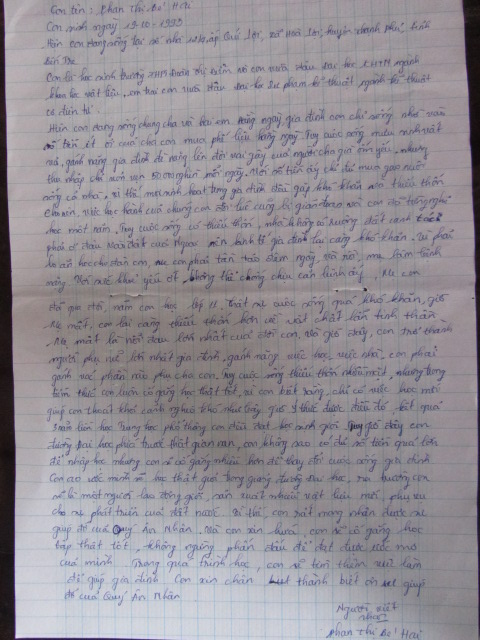 Con tên : Phan Thị Bé Hai
Con sinh ngày 19-10-1993
Hiện con đang sống tại số nhà ấp Quí Lợi, xã Hoà Lợi, huyện Thạnh Phú, tỉnh
Bến Tre
Con là học sinh trường THPT Đoàn Thị Điểm và con vừa đậu Đại học KHTN ngành
khoa học vật liệu, em trai con vừa đậu Đại học Sư phạm kĩ thuật ngành kĩ thuật
điện tử.
Hiện con đang sống chung cha và hai em. Hàng ngày gia đình con chỉ sống nhờ vào
số tiền ít ỏi của cha con mua phế liệu hàng ngày. Tuy cuộc sống mưu sinh vất
vả, gánh nặng gia đình đè nặng lên đôi vai gầy của người cha già ốm yếu, nhưng
thu nhập chỉ vỏn vẹn nghìn mỗi ngày. Với số tiền ấy chỉ đủ mua gạo nuôi
sống cả nhà, vì thế mọi sinh hoạt trong gia đình đều gặp khó khăn và thiếu thốn
việc học hành của chúng con đôi lúc cũng bị gián đoạn và con đã từng nghỉ
học một năm. Tuy cuộc sống có thiếu thốn, nhà không có ruộng đất canh tác
phải đi của Ngoại nên kinh tế gia đình lại càng khó khăn. Vì phải
lo ăn học cho con, mẹ con phải tần tảo đêm ngày, và rồi, mẹ lâm bệnh
nặng. Với sức khoẻ yếu ớt, không thể chống chịu căn bệnh ấy, mẹ con
đã qua đời, năm con học lớp 11. Thật sự cuộc sống quá khó khăn, giờ
mẹ mất, con lại càng thiếu thốn hơn về vật chất lẫn tinh thần.
Mẹ mất là nỗi đau lớn nhất của đời con. Và giờ đây, con trở thành
người phụ nữ lớn nhất gia đình, gánh nặng việc học, việc nhà, con phải
gánh vác phần nào phụ cha con. Tuy cuộc sống thiếu thốn nhiều mặt, nhưng trong
tâm thức con luôn cố gắng học thật tốt, vì con biết rằng, chỉ có việc học mới
giúp con thoát khỏi cảnh nghèo khó như bây giờ. Ý thức được điều đó, kết quả
3 năm liền học Trung học phổ thông con đều đạt học sinh giỏi. Tuy giờ đây con
đường Đại học phía trước thật gian nan, con không sao có đủ số tiền quá lớn
để nhập học nhưng con sẽ cố gắng nhiều hơn để thay đổi cuộc sống gia đình.
Con ao ước mình sẽ học thật giỏi trong giảng đường Đại học, ra trường con
sẽ là một người lao động giỏi, sản xuất nhiều vật liệu mới, phục vụ
cho sự phát triển của đất nước. Vì thế, con rất mong nhận được sự
giúp đỡ của Quý Ân Nhân. Và con xin hứa, con sẽ cố gắng học
tập thật tốt, không ngừng phấn đấu để đạt được ước mơ
của mình. Trong quá trình học, con sẽ tìm thêm việc làm
để giúp gia đình. Con xin chân thành biết ơn sự giúp
đỡ của Quý Ân Nhân
Người viết
Phan Thị Bé Hai